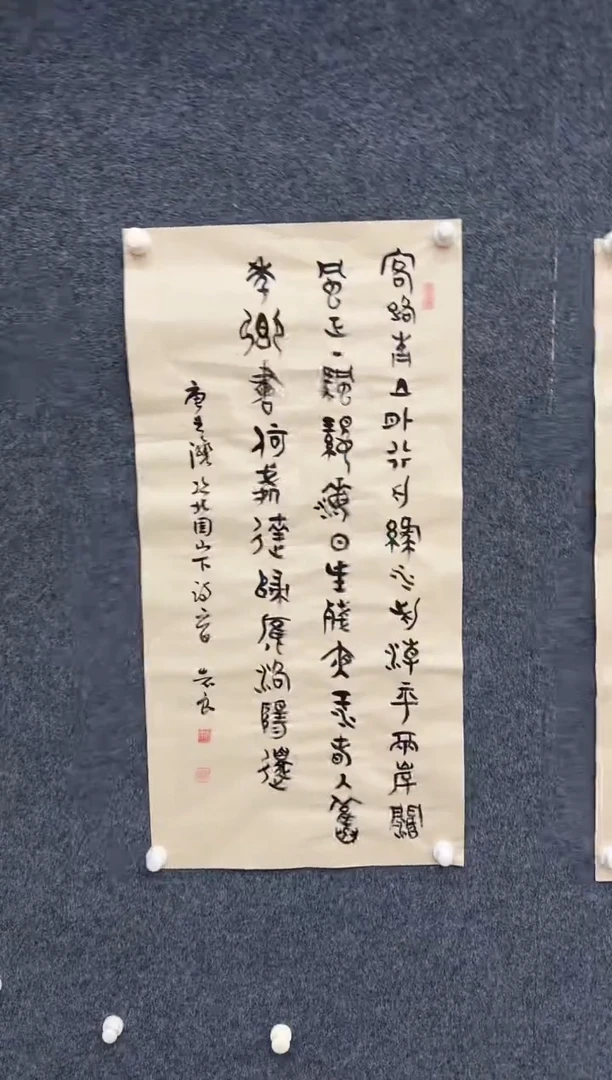 客路青山外行舟綠水前潮平兩岸闊
風正一帆懸海日生殘夜江春入舊
年鄉書何處達歸雁洛陽邊
唐王灣次北固山下詩